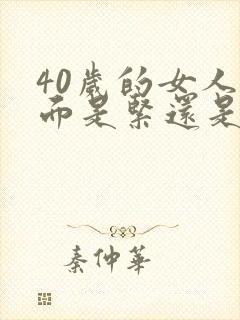 40歲的女人
而是緊還是
秦仲華